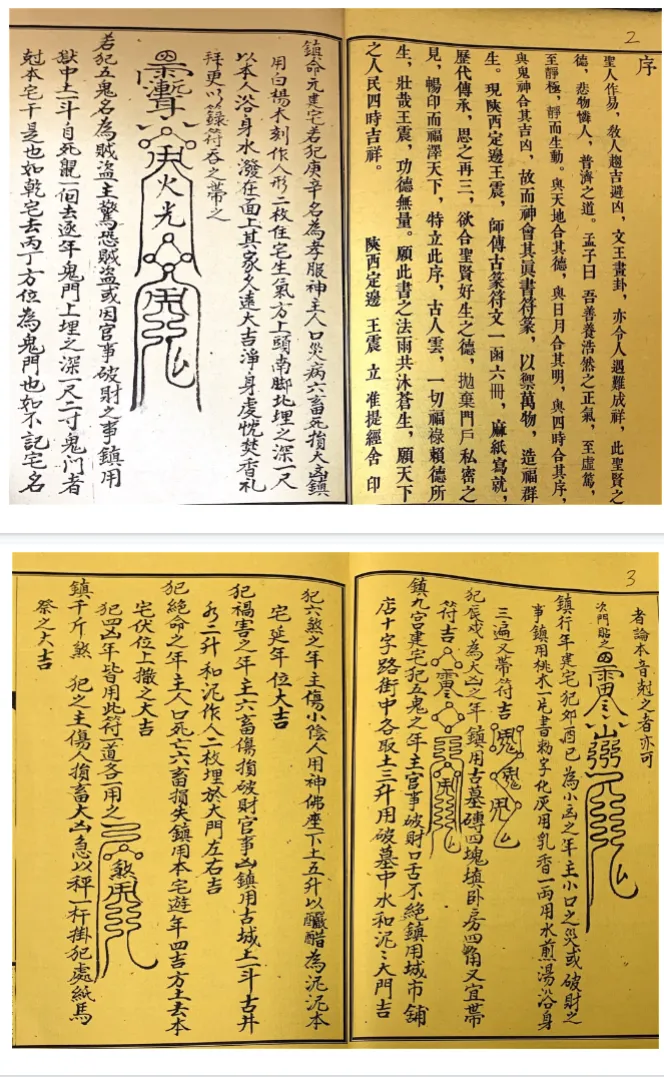 2
序
聖人作易，敎人趨吉避凶，文王畫卦，亦令人遇難成祥，此聖賢之
德，悲物憐人，普濟之道。孟子曰 吾善養浩然之正氣，至虛篤，
至靜極，靜而生動。與天地合其德，與日月合其明，與四時合其序，
與鬼神合其吉凶，故而神會其眞書符篆，以禦萬物，造福群
生。現陝西定邊王震，師傳古篆符文一函六冊，麻紙寫就，
歷代傳承，思之再三，欲合聖賢好生之德，拋棄門戶私密之
見，暢印而福澤天下，特立此序，古人雲，一切福祿賴德所
生，壯哉王震，功德無量。願此書之法雨共沐蒼生，願天下
之人民四時吉祥。
陝西定邊 王震 立 准提經舍 印
鎮命元建宅若犯庚辛名為孝服神主人口災病六畜死損大凶鎮
用白楊木刻作人形二枚住宅生氣方上頭南脚北埋之深一尺
以本人浴身水潑在面上其家久遠大吉淨身虔恍焚香礼
拜更以籙符吞之帶之
火光
若犯五鬼名為賊盗主驚恐賊盗或因官事破財之事鎮用
獄中土一斗自死鼠一個去逐年鬼門上埋之深一尺二寸鬼门者
尅本宅干是也如乾宅去丙丁方位為鬼門也如不記宅名
3
者論本音尅之者亦可
次門貼之
鎮行年建宅犯夘酉巳為小凶之年主小口之災或破財之
事鎮用桃木一片書物字化灰用乳香一兩用水煎湯浴身
三遍又带符吉
犯辰戌為大凶之年鎮用古墓磚四塊填卧房四角又宜帶
符吉
鎮九宮建宅犯五鬼之年主官事破財口舌不絶鎮用城市舖
店十字路街中各取土三升用破墓中水和泥泥大門吉
犯六煞之年主傷小陰人用神佛座下土五升以釅醋為泥泥本
宅延年位大吉
犯禍害之年主六畜傷損破財官事凶鎮用古城土一斗古井
水二升和泥作人二枚埋於大門左右吉
犯絶命之年主人口死亡六畜損失鎮用本宅遊年四吉方土去本
宅伏位上撒之大吉
犯四凶年皆用此符一道各一用之
煞
鎮千斤煞 犯之主傷人損畜大凶急以秤一杆掛犯處紙馬
祭之大吉